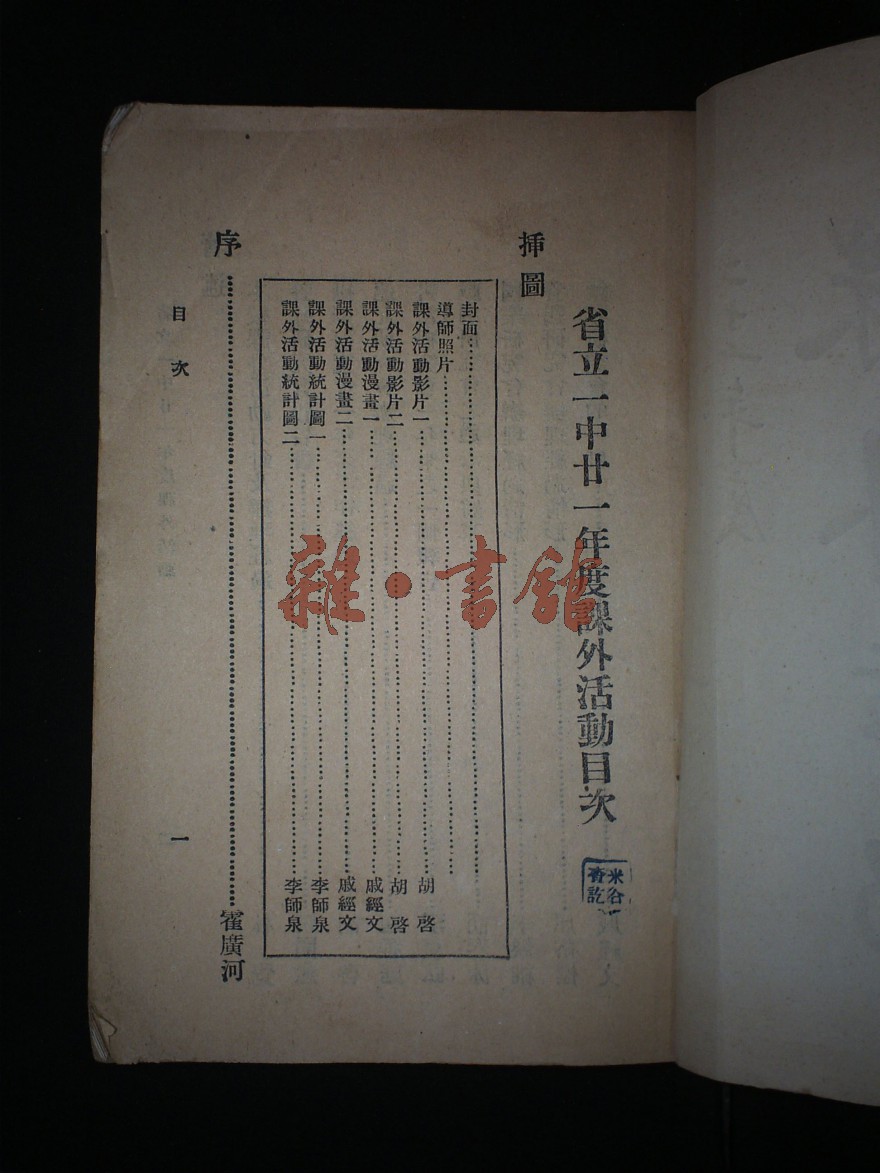 省立一中廿一年度課外活動目次
米谷
查訖
揷圖
封面
導師照片
課外活動影片一 胡啓
課外活動影片二 胡啓
課外活動漫畫一 戚經文
課外活動漫畫二 戚經文
課外活動統計圖一 李師泉
課外活動統計圖二 李師泉
序 霍廣河
目次
一
雜·書館